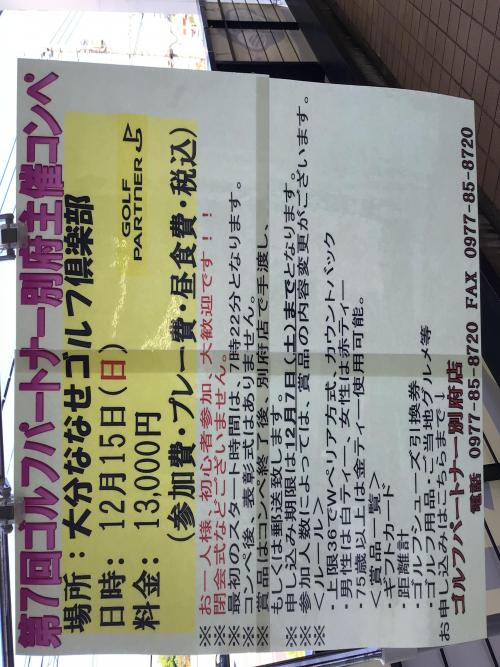 第7回ゴルフパートナー別府主催コンペ
場所：大分ななせゴルフ倶楽部
日時： 12月15日(日)
料金： 13,000円
(参加費・プレー費・昼食費・税込)
GOLF
PARTNER
※お一人様、初心者参加、大歓迎です！！
※閉会式などございません。
※最初のスタート時間は、7時22分となります。
※コンペ後、表彰式はありません。
※賞品はコンペ終了後、別府店で手渡し、
もしくは郵送致します。
※申し込み期限は12月7日(土)までとなります。
※参加人数によっては、賞品の内容変更がございます。
＜ルール＞
・上限36でWペリア方式、カウントバック
・男性は白ティー、女性は赤ティー
・75歳以上は金ティー使用可能。
＜賞品一覧＞
・ギフトカード
・距離計
・ゴルフシューズ引換券
・ゴルフ用品・ご当地グルメ等
お申し込みはこちらまで↓
ゴルフパートナー別府店
電話 0977-85-8720 FAX 0977-85-8720